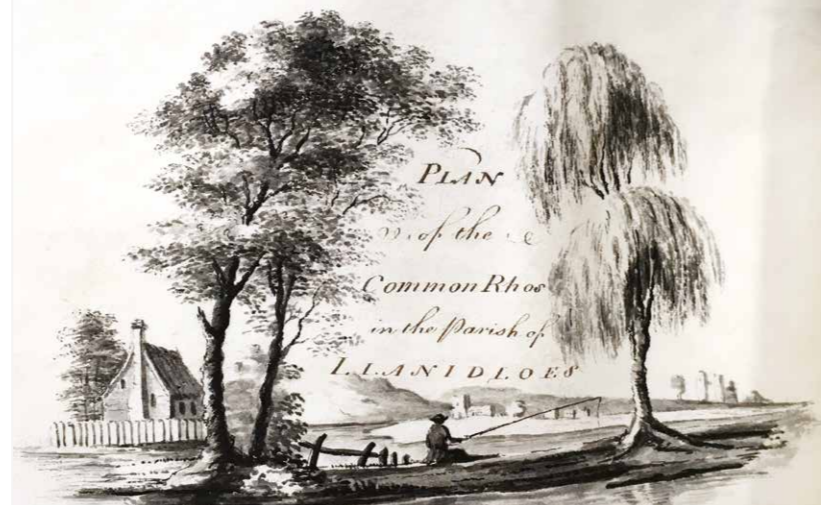 PLAN
of the
Common Rhos
in the Parish of
LLANIDLOES